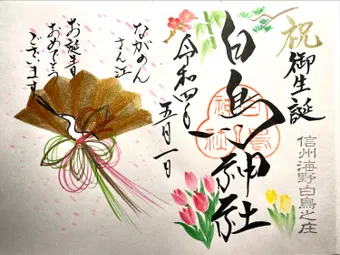 祝
御生誕
信州海野白鳥之庄
白鳥神社
令和四年
五月一日
ながめん
さん江
お誕生日
おめでとう
ございます